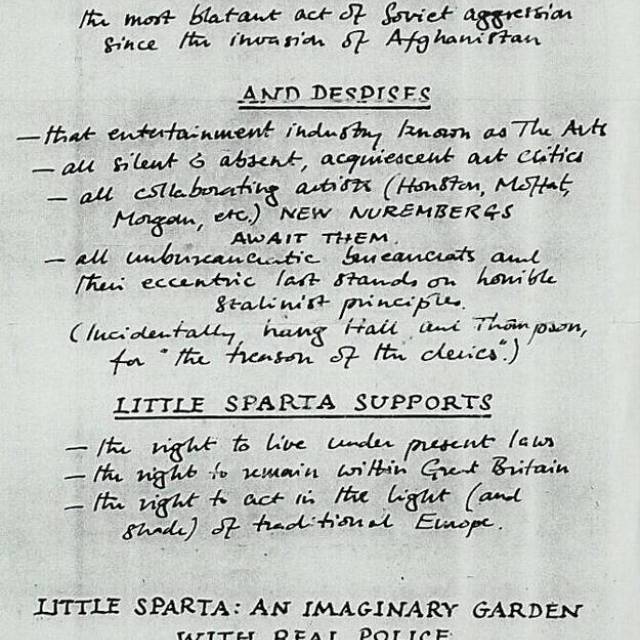 the most blatant act of Soviet aggression
since the invasion of Afghanistan
AND DESPISES
— that entertainment industry known as The Arts
— all silent & absent, acquiescent art critics
— all collaborating artists (Houston, Moffat,
Morgan, etc.) NEW NUREMBERGS
AWAIT THEM.
— all unbureaucratic bureaucrats and
their eccentric last stands on horrible
Stalinist principles.
(Incidentally, hang Hall and Thompson,
for "the treason of the clerics".)
LITTLE SPARTA SUPPORTS
— the right to live under present laws
— the right to remain within Great Britain
— the right to act in the light (and
shade) of traditional Europe.
LITTLE SPARTA: AN IMAGINARY GARDEN
WITH REAL POLICE